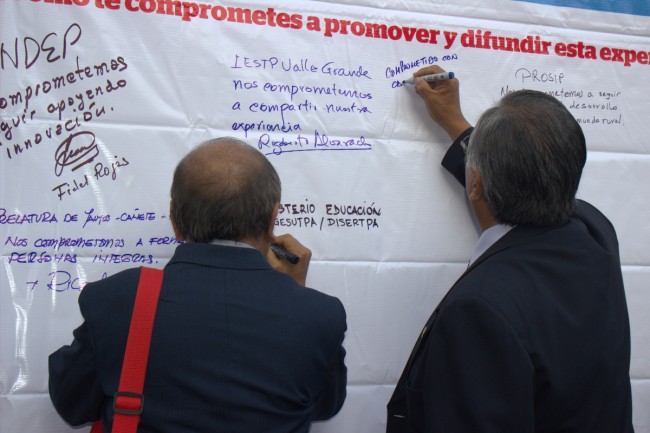 te comprometes a promover y difundir esta exper
NDEP
comprometemos
apoyando
innovación.
Fidel Rojas
IESTP Valle Grande
nos comprometemos
a compartir nuestra
experiencia
Rigoberto Alvarado
COMPROMETIDO CON
PROSIP
a seguir
desarrollo
mundo rural.
PRELATURA DE YAUYOS - CAÑETE -
NOS COMPROMETEMOS A FORMAR
PERSONAS INTEGRAS.
STERIO EDUCACIÓN
GESUTPA / DISERTPA